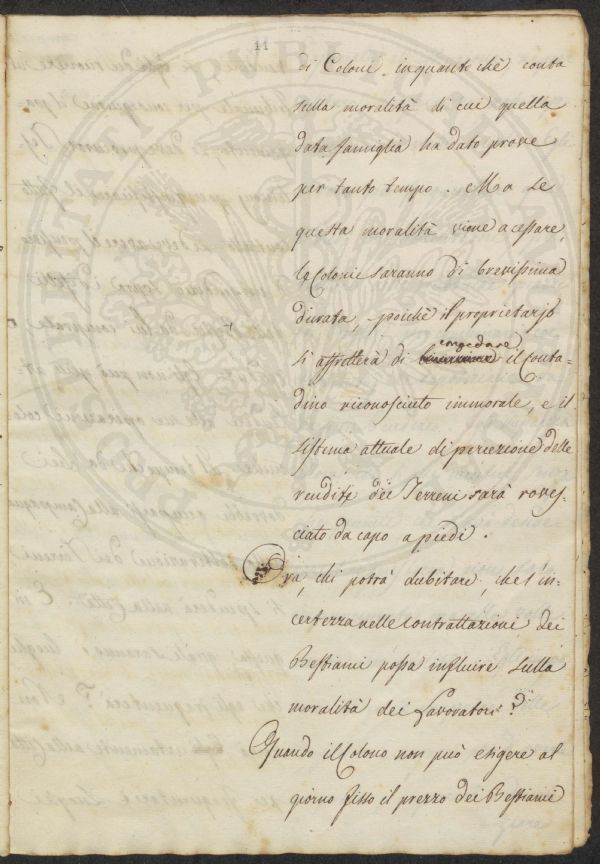 11
di Coloni, in quanto chè conta
sulla moralità di cui quella
data famiglia ha dato prove
per tanto tempo. Ma se
questa moralità viene a cessare,
le Colonie saranno di brevissima
durata, poichè il proprietario
congedare
si affretterà di il Conta-
dino riconosciuto immorale, e il
sistema attuale di percezione delle
rendite dei Terreni sarà roves-
ciato da capo a piedi.
Ora, chi potrà dubitare, che l'in-
certezza nelle Contrattazioni dei
Bestiami possa influire sulla
moralità dei Lavoratori?
Quando il Colono non può esigere al
giorno fisso il prezzo dei Bestiami